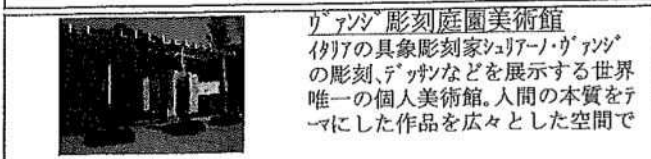 ヴァンジ彫刻庭園美術館
イタリアの具象彫刻家ジュリアーノ・ヴァンジ
の彫刻、デッサンなどを展示する世界
唯一の個人美術館。人間の本質をテ
ーマにした作品を広々とした空間で